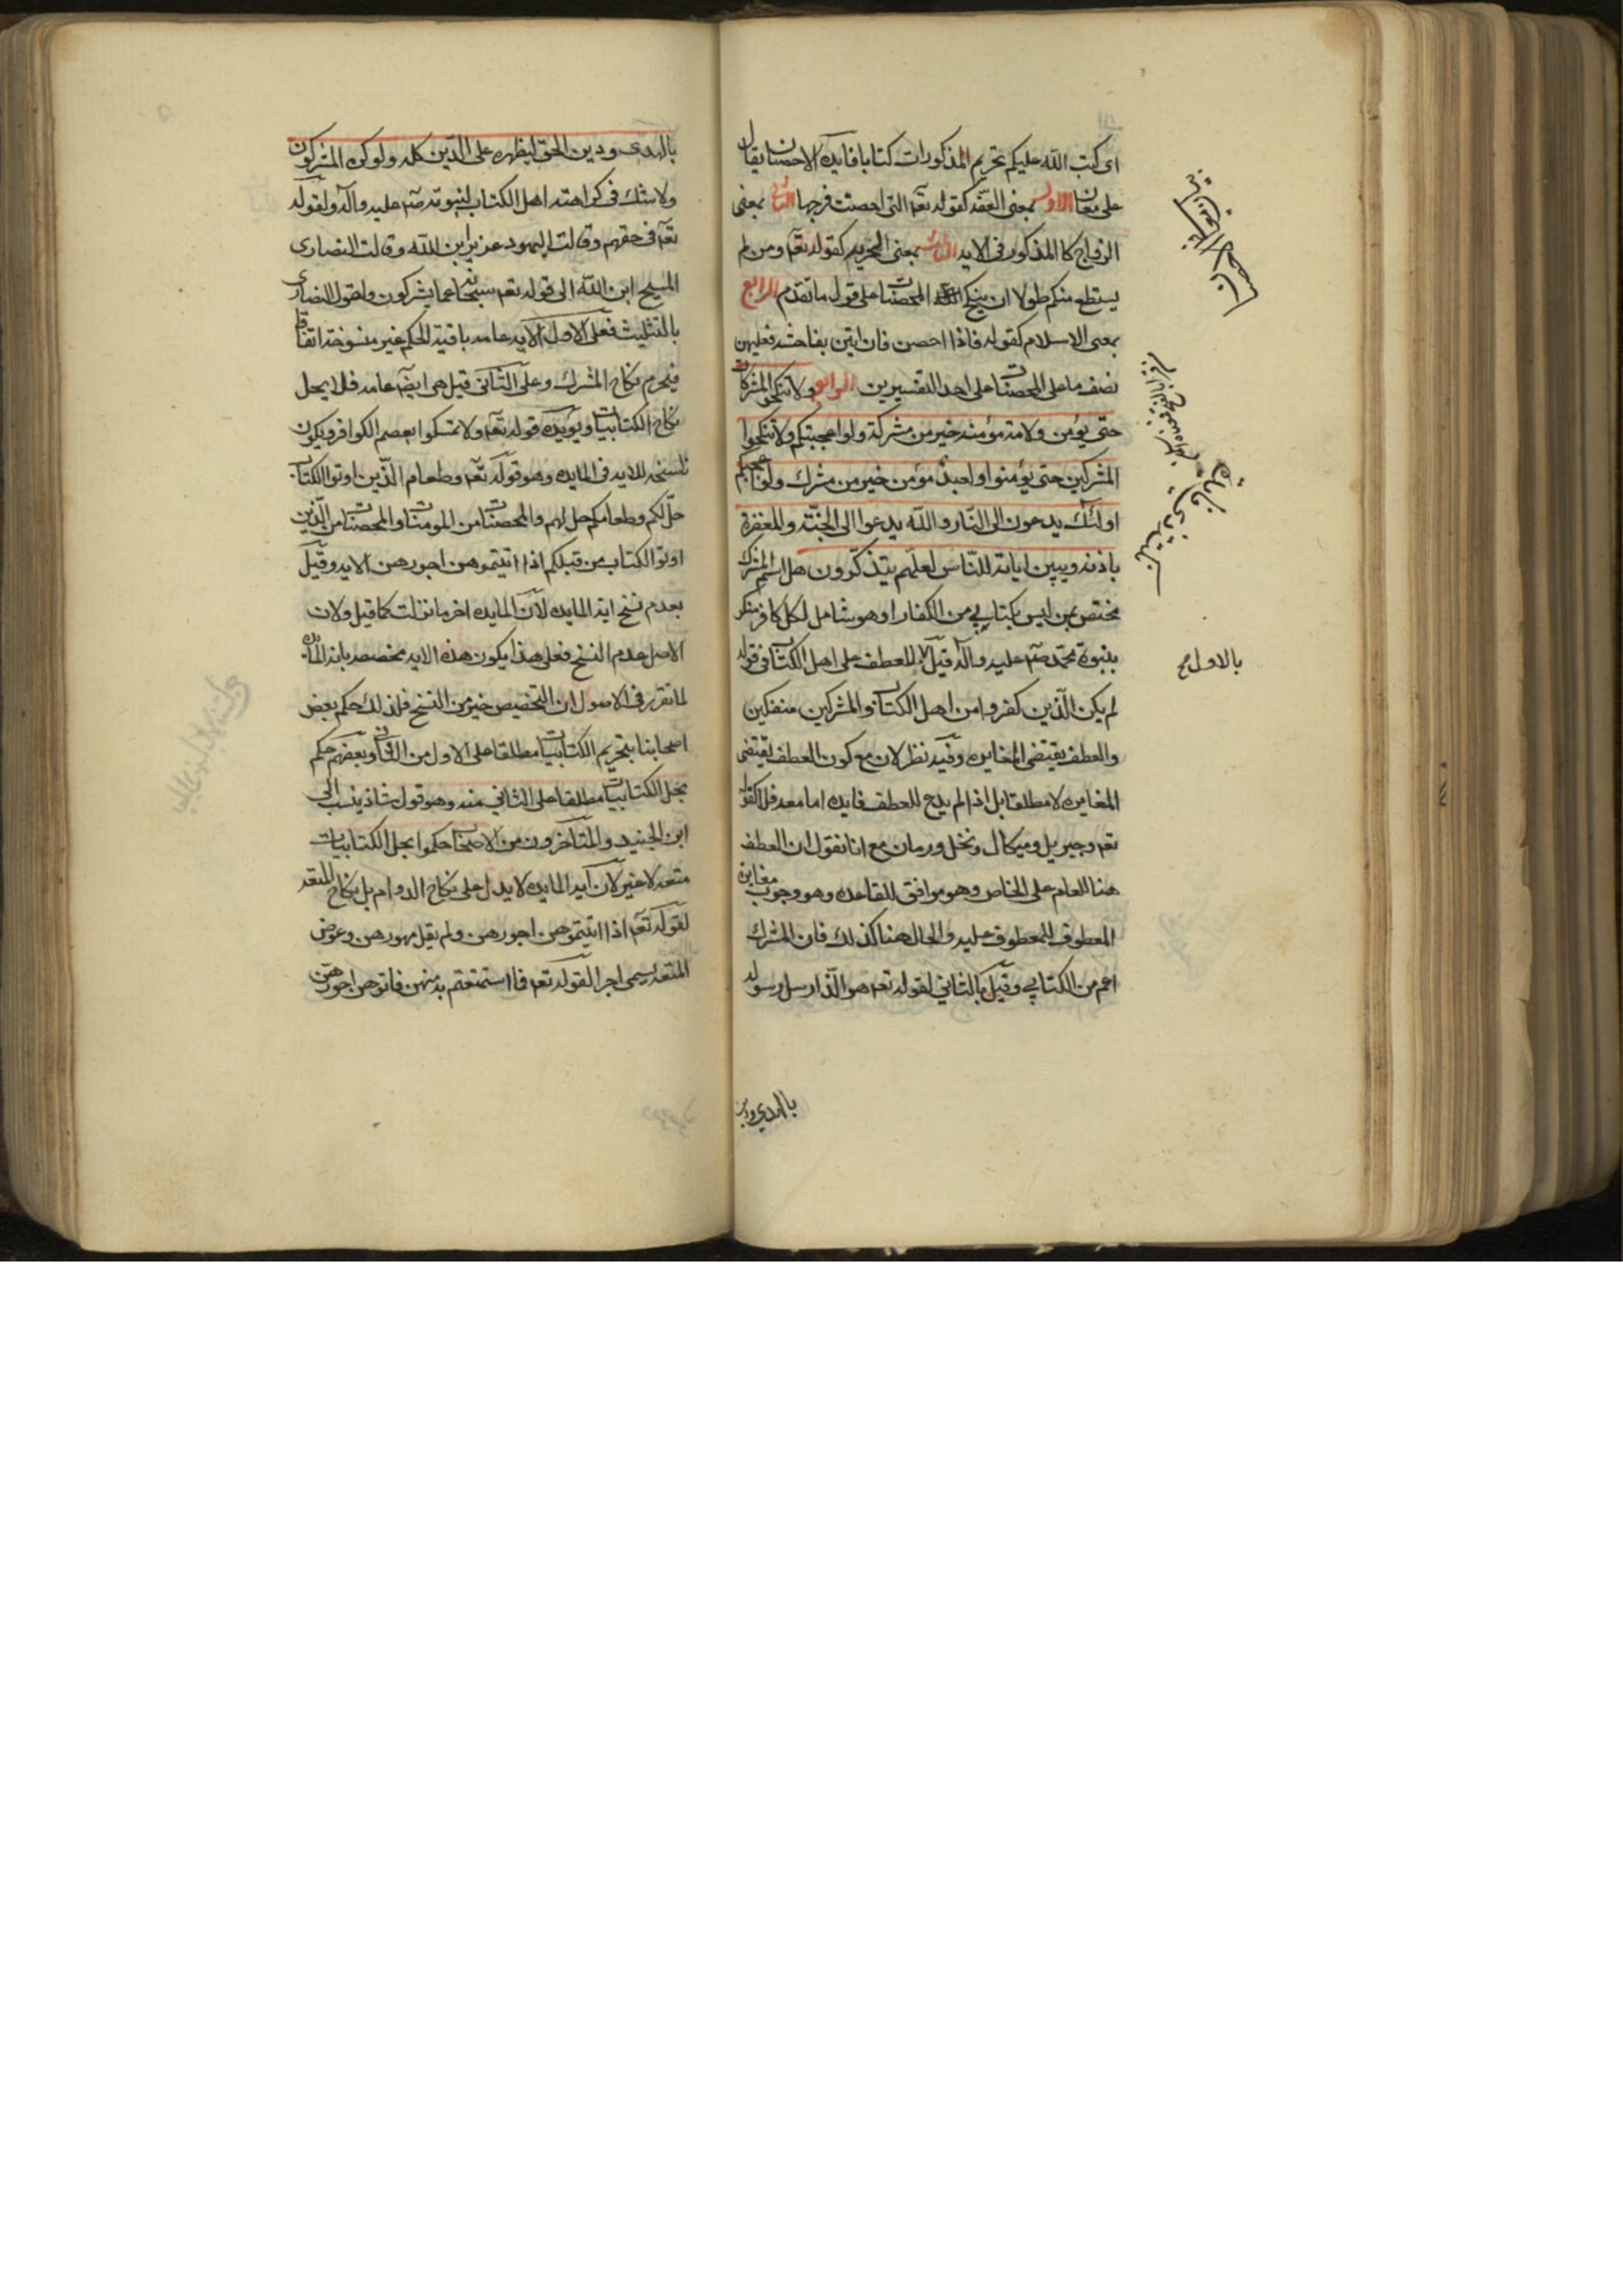 اى كتب الله عليكم تحريم المذكورات كتابا فايدة الاحصان يقال
على معان الاول بمعنى العفة كقوله تعه التى احصنت فرجها الثانى بمعنى
الزواج كالمذكور فى الايه الثالث بمعنى الحريه كقوله تعه ومن لم
يستطع منكم طولا ان ينكح المحصنات على قول ما تقدم الرابع
بمعنى الاسلام كقوله فاذا احصن فان اتين بفاحشه فعليهن
نصف ما على المحصنات على احد التفسيرين الرابع ولا تنكحوا المشركات
حتى يؤمن ولامة مؤمنه خير من مشركة ولو اعجبتكم ولا تنكحوا
المشركين حتى يؤمنوا ولعبد مؤمن خير من مشرك ولو اعجبكم
اولئك يدعون الى النار والله يدعوا الى الجنة والمغفرة
باذنه ويبين اياته للناس لعلهم يتذكرون هل اسم المشرك
مختص بمن ليس بكتابي من الكفار او هو شامل لكل كافر منكر
بنبوة محمد صه عليه واله قيل للعطف على اهل الكتاب فى قوله
لم يكن الذين كفروا من اهل الكتاب والمشركين منفكين
والعطف يقتضى المغايره وفيه نظر لان مع كون العطف يقتضى
المغايره لا مطلقا بل اذا لم يدع للعطف فايده اما معه فلا كقوله
تعه وجبريل وميكال ونخل ورمان مع انا نقول ان العطف
هنا للعام على الخاص وهو موافق للقاعده وهو وجوب مغايرة
المعطوف للمعطوف عليه والحال هنا كذلك فان المشرك
اعم من الكتابي وقيل بالثاني لقوله تعه هو الذى ارسل رسوله
بالاول صح
بالهدى ودين
بالهدى ودين الحق ليظهره على الدين كله ولو كره المشركون
ولا شك فى كراهته اهل الكتاب لنبوته صه عليه واله ولقوله
تعه فى حقهم وقالت اليهود عزير ابن الله وقالت النصارى
المسيح ابن الله الى قوله تعه سبحانه عما يشركون ولقول النصارى
بالتثليث فعلى الاول الايه عامه باقية الحكم غير منسوخة اتفاقا
فيحرم نكاح المشرك وعلى الثانى قيل هى ايضه عامه فلا يحل
نكاح الكتابيات ويؤيده قوله تعه ولا تمسكوا بعصم الكوافر ويكون
ناسخه للايه فى المايده وهو قوله تعه وطعام الذين اوتوا الكتاب
حل لكم وطعامكم حل لهم والمحصنات من المومنات والمحصنات من الذين
اوتوا الكتاب من قبلكم اذا اتيتموهن اجورهن الايه وقيل
بعدم نسخ اية المايده لان المايده اخر ما نزلت كما قيل ولان
الاصل عدم النسخ فعلى هذا يكون هذه الايه مخصصه باية المائده
لما تقرر فى الاصول ان التخصيص خير من النسخ فلذلك حكم بعض
اصحابنا بتحريم الكتابيات مطلقا على الاول من الثانى وبعضهم حكم
بحل الكتابيات مطلقا على الثاني منه وهو قول شاذ ينسب الى
ابن الجنيد والمتاخرون من الاصحاب حكموا بحل الكتابيات
متعه لا غير لان آيه المايده لا يدل على نكاح الدوام بل نكاح المتعه
لقوله تعه اذا اتيتموهن اجورهن ولم يقل مهورهن وعوض
المتعه يسمى اجرا لقوله تعه فما استمتعتم به منهن فاتوهن اجورهن